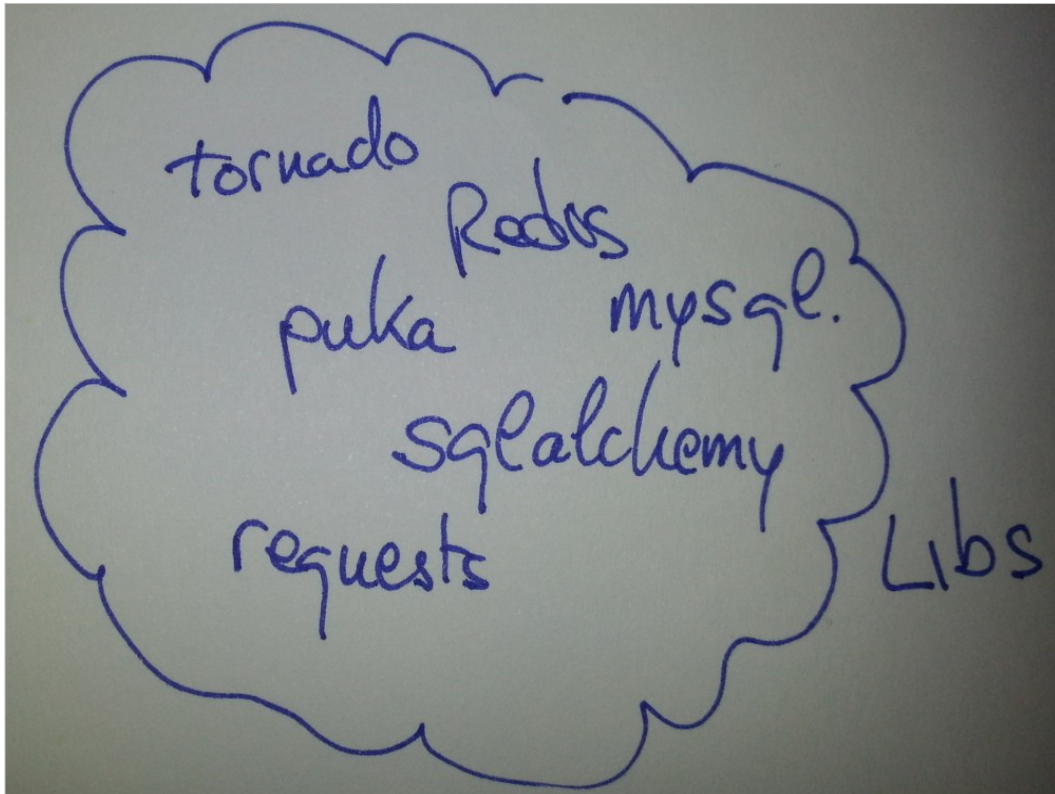 tornado
Redis
puka
mysql.
sqlalchemy
requests
Libs